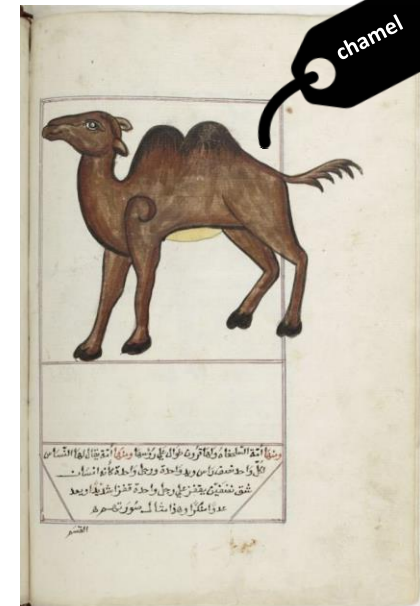 chamel
ومنها أمة السلحفاة ولها قرون طوال على رؤسها ومنها أمة يقال لها النسناس
لكل واحد نصف راس ويد واحدة ورجل واحدة كانه انسان
شق نصفين يقفز على رجل واحدة قفزا شديدا ويعد
عدوا منكرا وهذا مثال صورتهم
القسم